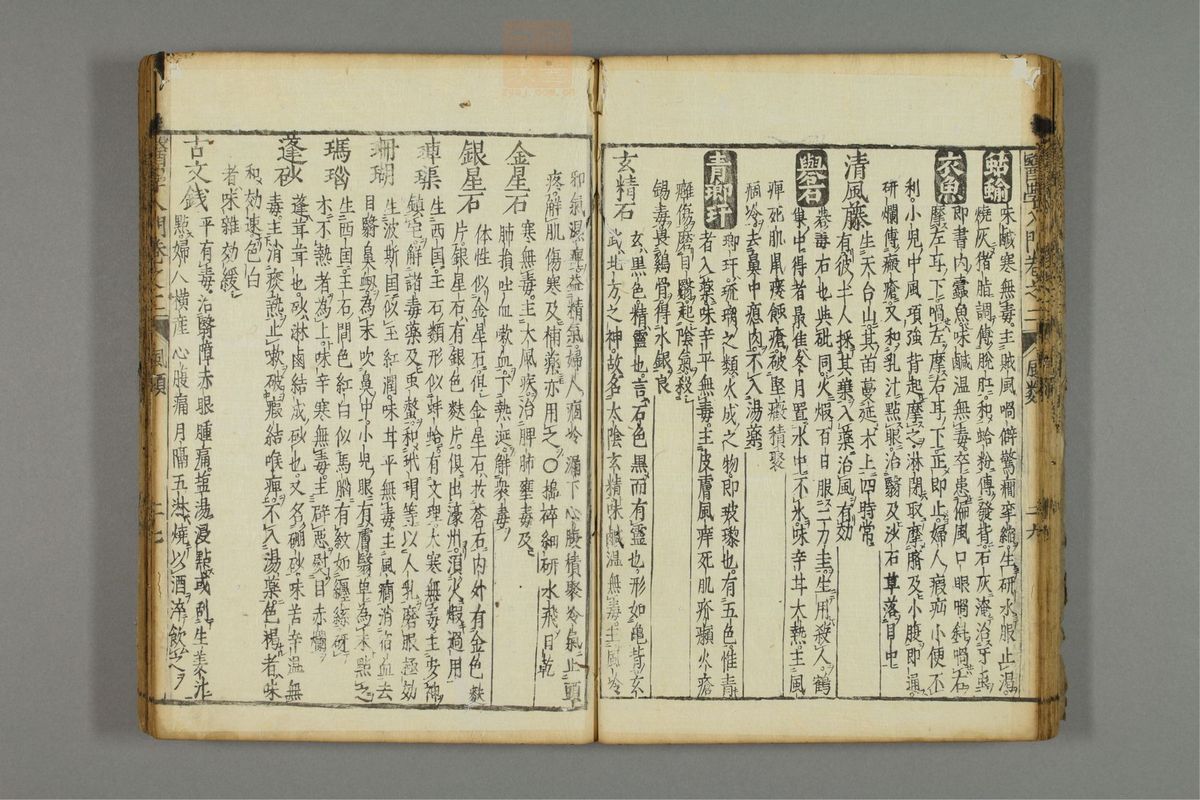 醫學入門卷之二 風類 二六
蛞蝓 味鹹寒無毒主賊風喎僻驚癇攣縮生研水服止渴
燒灰猪脂調傅脫肛和蛤粉傅發背石灰淹治牙
衣魚 即書内蠹魚味鹹溫無毒卒患偏風口眼喎斜喎右
摩左耳下喎左摩右耳下正即止婦人瘕疝小便不
利小兒中風項強背起摩之淋閉取摩臍及小腹即通
研爛傅瘢瘡又和乳汁點眼治翳及沙石草落目中
清風藤 生天台山其苗蔓延木上四時常
有彼土人採其藥入藥治風有効
礜石 礜毒石也與砒同火煅百日服一刀圭生用殺人鶴
巢中得者最佳冬月置水中不氷味辛甘大熱主風
痺死肌鼠瘻蝕瘡破堅癥積聚
痼冷去鼻中瘜肉不入湯藥
青瑯玕 瑯玕琉璃之類火成之物即玻瓈也有五色惟青
者入藥味辛平無毒主皮膚風痒死肌疥癩火瘡
癰傷磨目翳起陰氣殺
錫毒畏鷄骨得水銀良
玄精石 玄黑色精靈也言石色黑而有靈也形如龜背玄
武北方之神故名太陰玄精味鹹溫無毒主風冷
邪氣濕痺益精氣婦人痼冷漏下心腹積聚冷氣止頭
疼解肌傷寒及補藥亦用之〇搗碎細研水飛日乾
金星石 寒無毒主大風疾治脾肺壅毒及
肺損吐血嗽血下熱涎解衆毒
銀星石 体性似金星石但金星石於蒼石内外有金色麩
片銀星石有銀色麩片俱出濠州須火煅過用
車渠 生西国玉石類形似蚌蛤有文理大寒無毒主安神
鎮宅解諸毒藥及虫螫和玳瑁等以人乳磨服極効
珊瑚 生波斯国似玉紅潤味甘平無毒主風癇消宿血去
目翳鼻衂為末吹鼻中小兒眼有膚翳單為末點之
瑪瑙 生西国玉石間色紅白似馬腦有紋如纏絲砑
木不熱者為上味辛寒無毒主辟惡熨目赤爛
蓬砂 蓬茸茸也砂淋鹵結成砂也又名硼砂味苦辛溫無
毒主消痰熱止嗽破瘕結喉痺不入湯藥色褐者味
和効速色白
者味雜効緩
古文錢 平有毒治翳障赤眼腫痛塩湯浸點或刮生姜汁
點婦人横產心腹痛月隔五淋燒以酒淬飲之
醫學入門卷之二 風類 二七